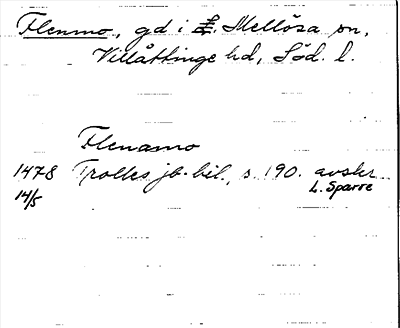 Flenmo, gd i St. Mellösa sn,
Villåttinge hd, Söd. l.
Flenamo
1478 Trolles jb. bil., s. 190. avskr
14/5 L. Sparre